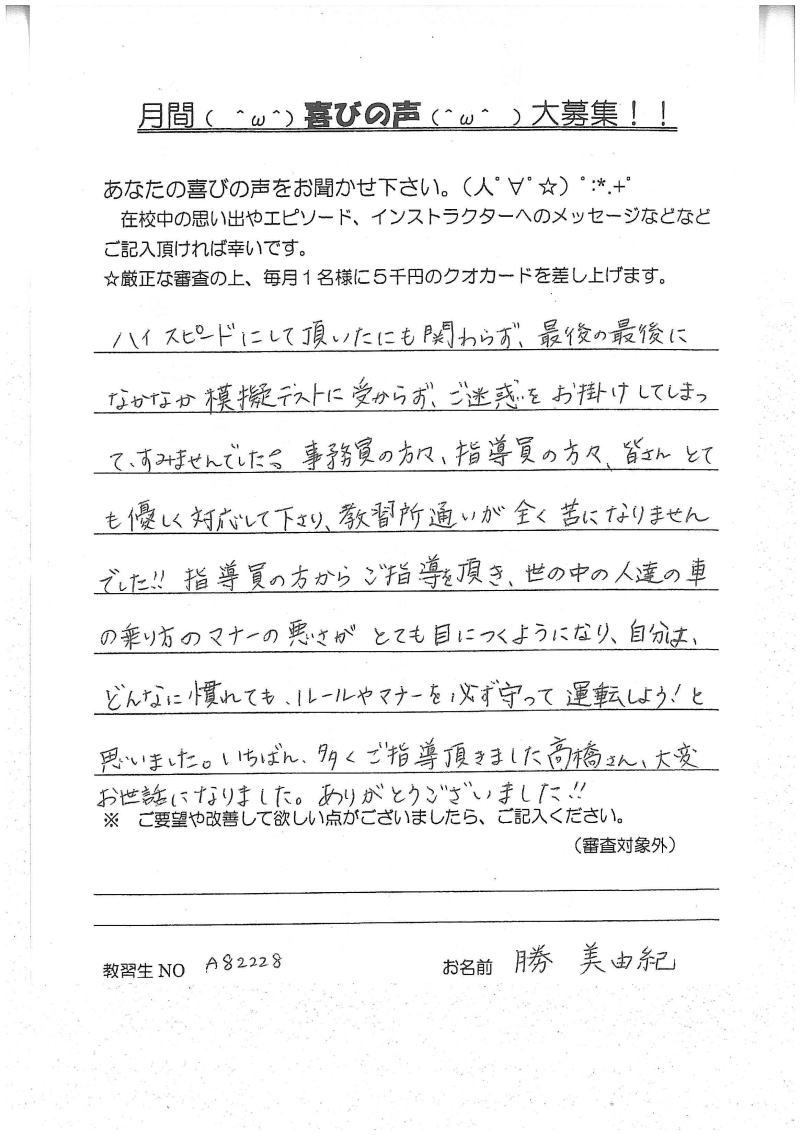 月間（　＾ω＾）喜びの声（＾ω＾　）大募集！！
あなたの喜びの声をお聞かせ下さい。（人ﾟ∀ﾟ☆）ﾟ:*.+ﾟ
在校中の思い出やエピソード、インストラクターへのメッセージなどなど
ご記入頂ければ幸いです。
☆厳正な審査の上、毎月１名様に５千円のクオカードを差し上げます。
ハイスピードにして頂いたにも関わらず、最後の最後に
なかなか模擬テストに受からず、ご迷惑をお掛けしてしまっ
て、すみませんでした。事務員の方々、指導員の方々、皆さんとて
も優しく対応して下さり、教習所通いが全く苦になりません
でした!! 指導員の方からご指導を頂き、世の中の人達の車
の乗り方のマナーの悪さがとても目につくようになり、自分は、
どんなに慣れても、ルールやマナーを必ず守って運転しよう！と
思いました。いちばん、多くご指導頂きました高橋さん、大変
お世話になりました。ありがとうございました!!
※　ご要望や改善して欲しい点がございましたら、ご記入ください。
（審査対象外）
教習生NO A82228 お名前 勝 美由紀